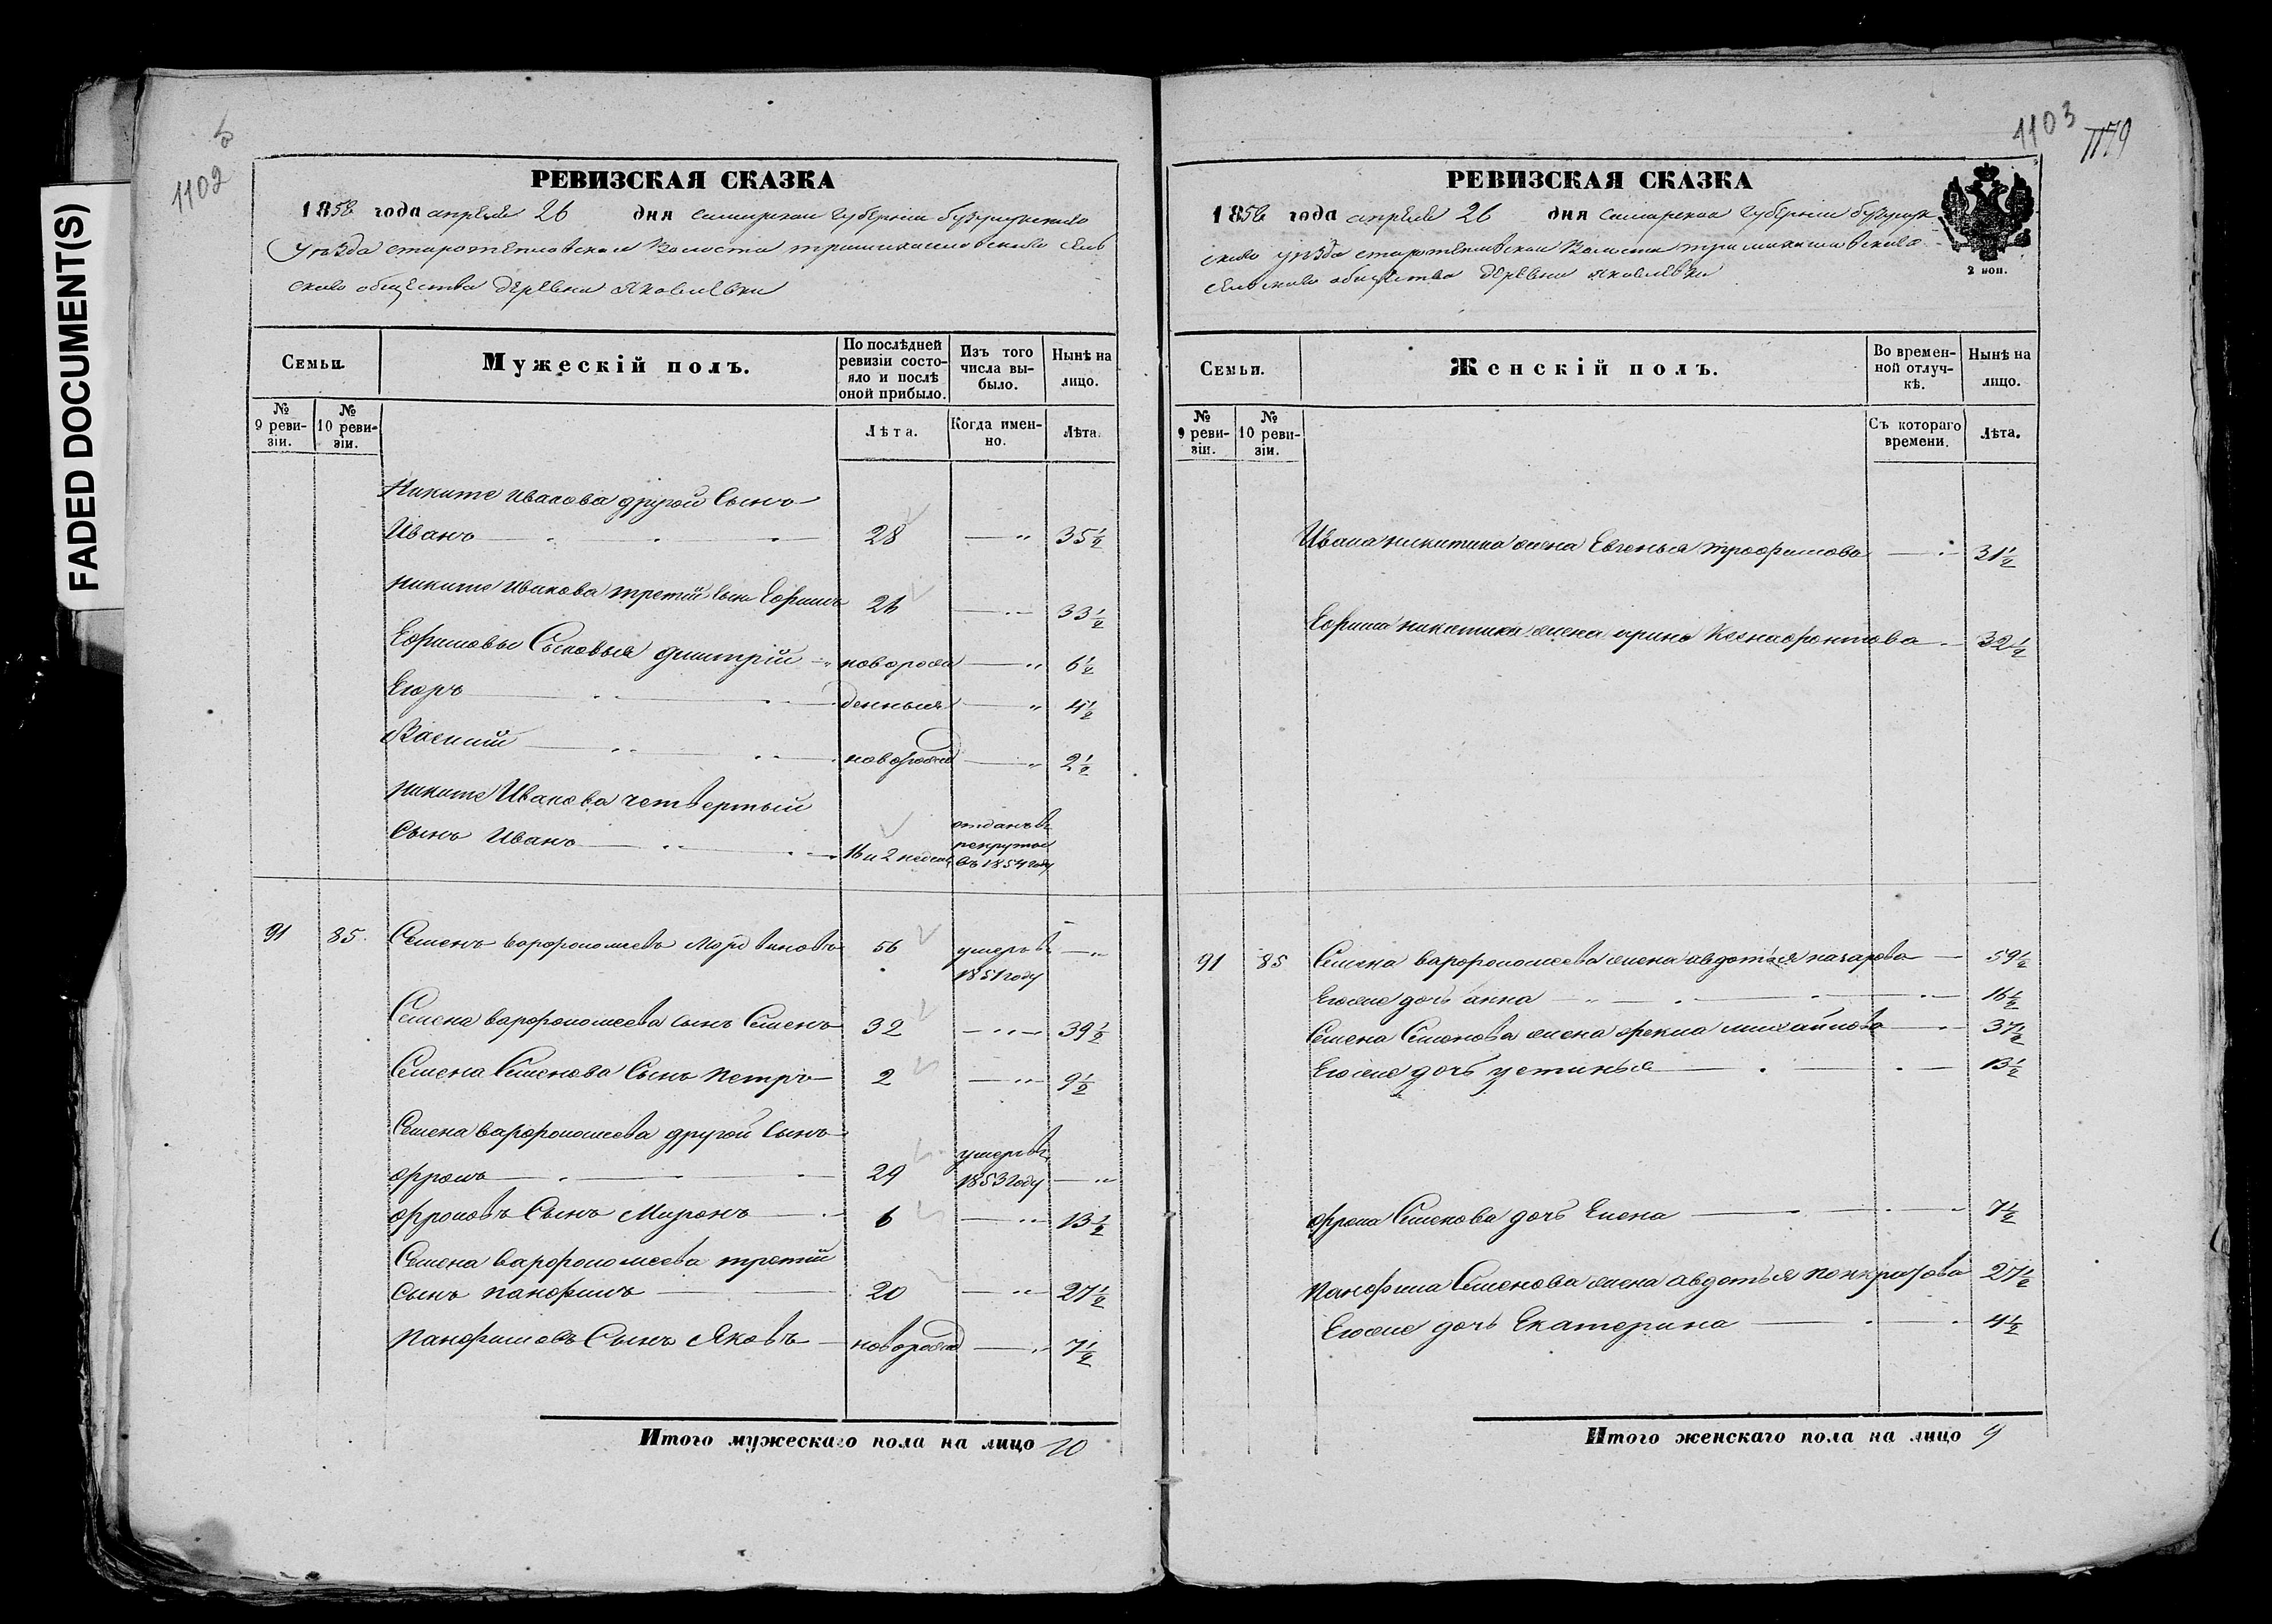 FADED DOCUMENT(S)
1102
РЕВИЗСКАЯ СКАЗКА
1858 года апреля 26 дня самарской губернии бузулукскаго
Уезда старотепловской Волости тримихаиловскаго сель
скаго общества деревни Яковлевки
Семьи.
Мужескій полъ.
По послѣдней ревизіи состояло и послѣ оной прибыло.
Изъ того числа выбыло.
Нынѣ на лицо.
№ 9 ревизіи.
№ 10 ревизіи.
Лѣта.
Когда именно.
Лѣта.
Никиты Иванова другой Сынъ
Иванъ 28 35 1/2
Никиты Иванова третій сынъ Ефимъ 26 33 1/2
Ефимовы Сыновья Дмитрій новорож 6 1/2
Егоръ денныя 4 1/2
Василий новорожд 2 1/2
Никиты Иванова четвертый
Сынъ Иванъ 16 и 2 недели отданъ в рекруты въ 1854 году
91 85. Семенъ варфоломеевъ Мордвиновъ 56 умеръ въ 1851 году
Семена варфоломеева сынъ Семенъ 32 39 1/2
Семена Семенова Сынъ Петръ 2 9 1/2
Семена варфоломеева другой Сынъ
фролъ 29 умеръ въ 1853 году
фроловъ Сынъ Миронъ 6 13 1/2
Семена варфоломеева третій
сынъ панфилъ 20 27 1/2
Панфиловъ Сынъ Яковъ новорожд 7 1/2
Итого мужескаго пола на лицо 10
1103
1179
РЕВИЗСКАЯ СКАЗКА
2 коп.
1858 года апреля 26 дня самарской губернии бузулук
скаго уезда старотепловской Волости тримихаиловскаго
сельскаго общества деревни яковлевки
Семьи.
Женскій полъ.
Во временной отлучкѣ.
Нынѣ на лицо.
№ 9 ревизіи.
№ 10 ревизіи.
Съ котораго времени.
Лѣта.
Ивана никитина жена Евгенья трофимова 31 1/2
Ефима никитина жена арина Ксенофонтова 32 1/2
91 85 Семена варфоломеева жена авдотья назарова 59 1/2
Егоже дочь анна 16 1/2
Семена Семенова жена фекла михайлова 37 1/2
Егоже дочь устинья 13 1/2
фрола Семенова дочь Елена 7 1/2
Панфила Семенова жена авдотья понкратова 27 1/2
Егоже дочь Екатерина 4 1/2
Итого женскаго пола на лицо 9